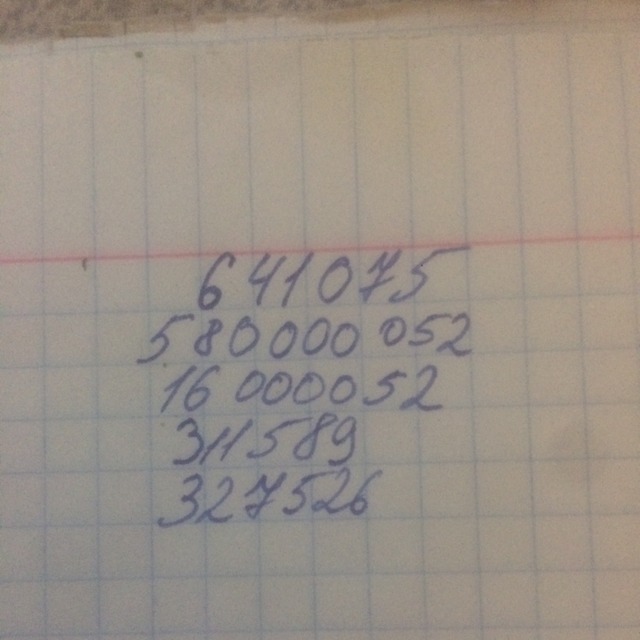 641075
580000 052
16 000052
311589
327526